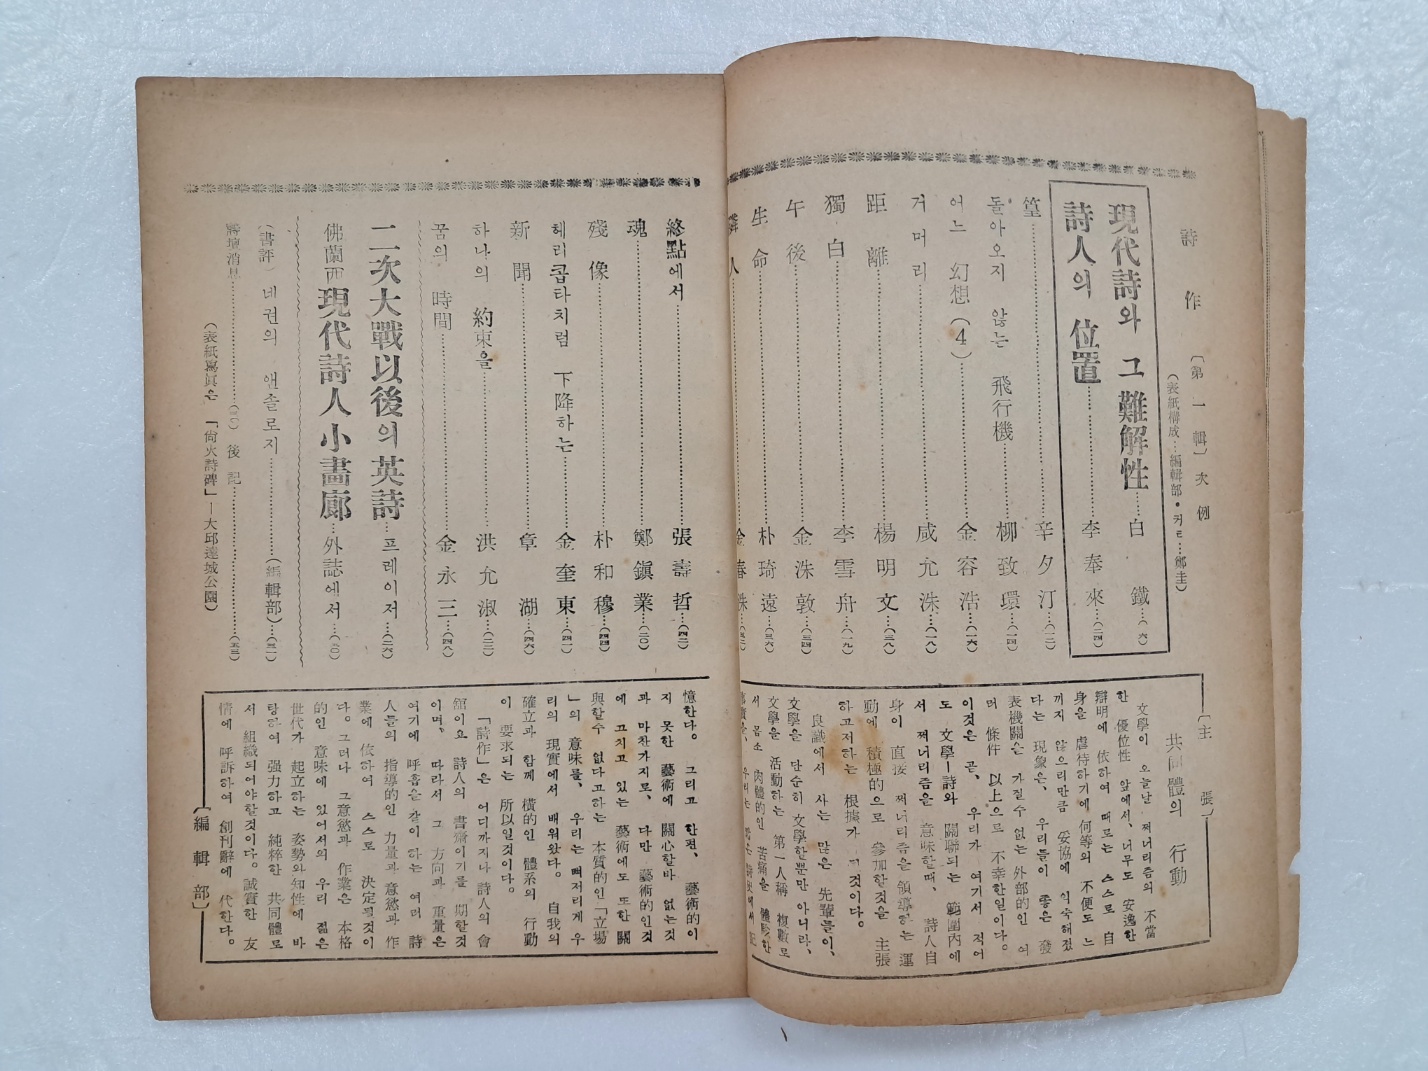 詩作 〔第一輯〕 次例
(表紙構成…編輯部·커트…鄭圭)
現代詩와 그 難解性……白鐵…(六)
詩人의 位置……李奉來…(二四)
篁……辛夕汀…(一二)
돌아오지 않는 飛行機……柳致環…(一四)
어느 幻想(4)……金容浩…(一六)
거머리……咸允洙…(一八)
距離……楊明文…(三八)
獨白……李雪舟…(一九)
午後……金洙敦…(三四)
生命……朴琦遠…(三六)
人……金春洙
終點에서……張壽哲…(四二)
魂……鄭鎭業…(二〇)
殘像……朴和穆…(四四)
헤리콥타처럼 下降하는……金奎東…(四一)
新聞……章湖…(四六)
하나의 約束을……洪允淑…(二二)
꿈의 時間……金永三…(四八)
二次大戰以後의 英詩…프레이저…(二六)
佛蘭西現代詩人小畵廊…外誌에서…(一〇)
(書評) 네권의 앤솔로지……(編輯部)…(三一)
詩壇消息……(三二) 後記……(五三)
(表紙寫眞은 「尙火詩碑」—大邱達城公園)
〔主張〕
共同體의 行動
文學이 오늘날 쩌너리즘의 不當
한 優位性 앞에서、너무도 安逸한
辯明에 依하여 때로는 스스로 自
身을 虐待하기에 何等의 不便도 느
끼지 않으리만큼 妥協에 익숙해졌
다는 現象은、우리들이 좋은 發
表機關을 가질수 없는 外部的인 여
러 條件 以上으로 不幸한일이다。
이것은 곧、우리가 여기서 적어
도 文學—詩와 關聯되는 範圍內에
서 쩌너리즘을 意味할때、詩人自
身이 直接 쩌너리즘을 領導하는 運
動에 積極的으로 參加할것을 主張
하고저하는 根據가 되것이다。
良識에서 사는 많은 先輩들이、
文學을 단순히 文學할뿐만 아니라、
文學을 活動하는 第一人稱 複數로
서 몸소 肉體的인 苦痛을 體驗한
憶한다。그리고 한편、藝術的이
지 못한 藝術에 關心할바 없는것
과 마찬가지로、다만 藝術的인것
에 끄치고 있는 藝術에도 또한 關
與할수 없다고하는 本質的인「立場
」의 意味를、우리는 뼈저리게 우
리의 現實에서 배워왔다。自我의
確立과 함께 橫的인 體系의 行動
이 要求되는 所以일것이다。
「詩作」은 어디까지나 詩人의 會
舘이요 詩人의 書齋이기를 期할것
이며、따라서 그 方向과 重量은
여기에 呼吸을 같이 하는 여러 詩
人들의 指導的인 力量과 意慾과 作
業에 依하여 스스로 決定될것이
다。그러나 그意慾과 作業은 本格
的인 意味에 있어서의 우리 젊은
世代가 起立하는 姿勢와知性에 바
탕하여 强力하고 純粹한 共同體로
서 組織되어야할것이다。誠實한 友
情에 呼訴하여 創刊辭에 代한다。
〔編輯部〕